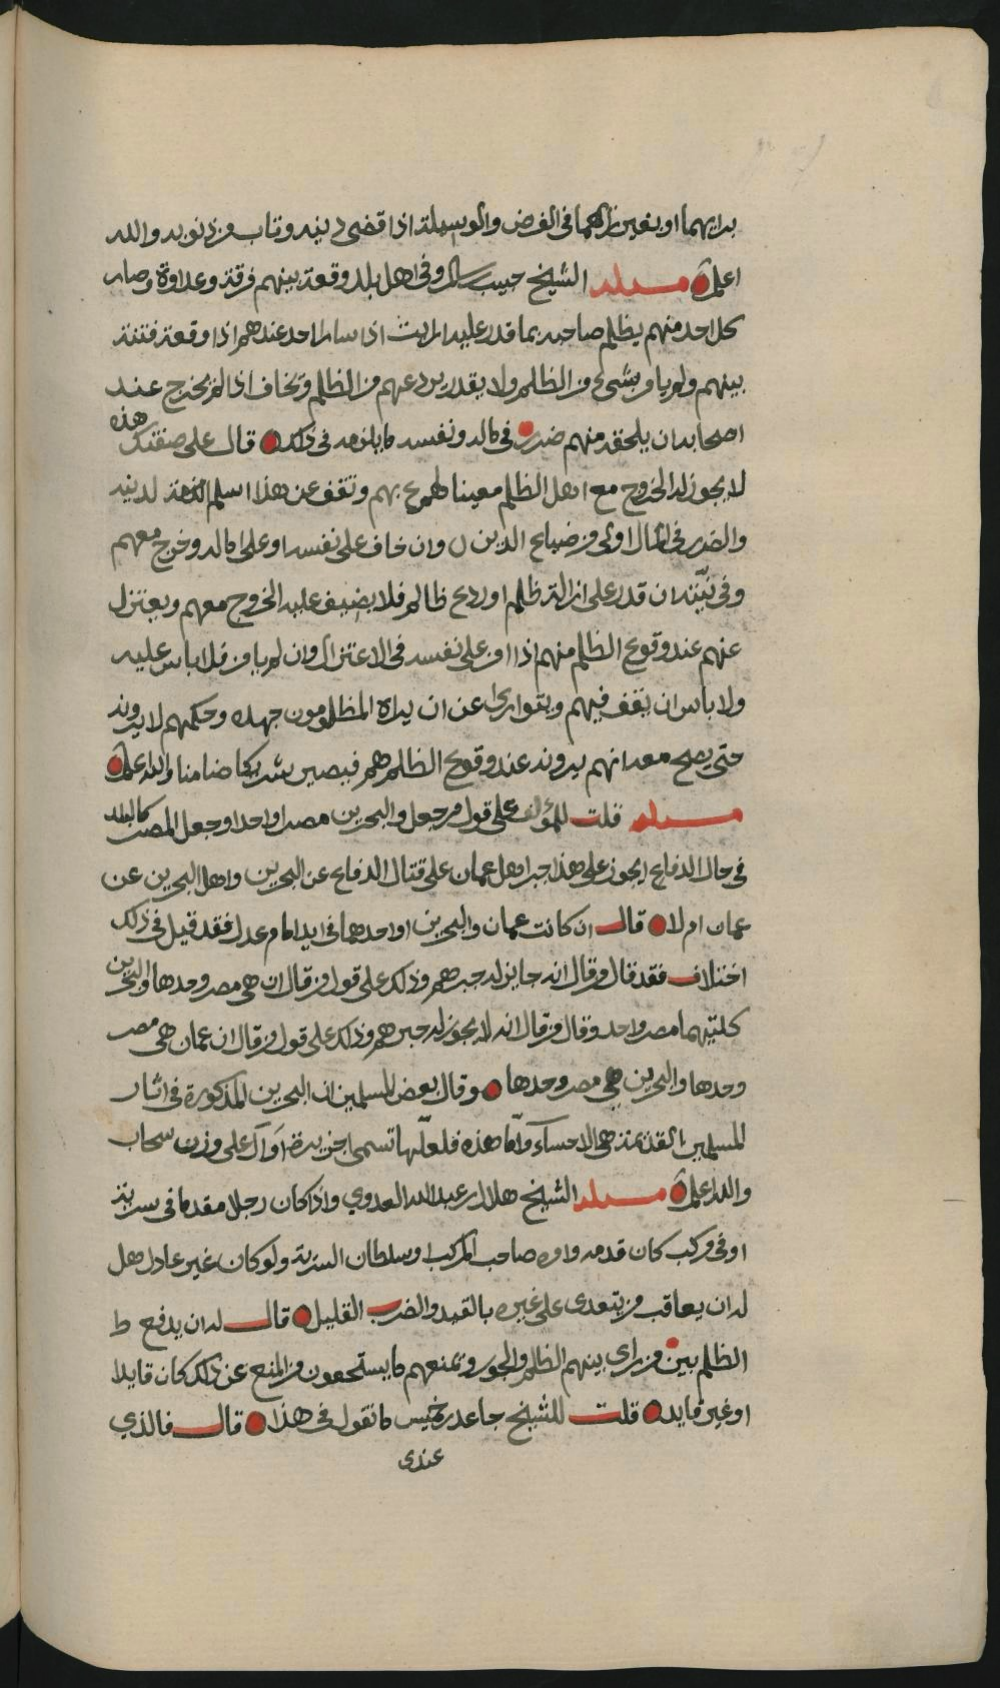 برايهما او بغير رايهما في الفرض والوسيلة اذا قضى دينه وتاب من ذنوبه والله
اعلم مسئلة الشيخ حبيب بن سالم وفي اهل بلد وقعة بينهم فرقة وعداوة وصار
كل احد منهم يظلم صاحبه بما قدر عليه ارايت اذا سار احد عندهم اذا وقعة فتنة
بينهم ولم يامر بشيء من الظلم ولا يقدر يردعهم من الظلم ويخاف اذا لم يخرج عند
اصحابه ان يلحقه منهم ضرر في ماله ونفسه ما يلزمه في ذلك قال على صفتك هذه
لا يجوز له الخروج مع اهل الظلم معينا لهم بهم وتقف عن هذا اسلم لدينه
والضرر في المال اولى من ضياع الدين وان خاف على نفسه او على ماله وخرج معهم
وفي نيّته ان قدر على ازالة ظلم او ردع ظالم فلا يضيف عليه الخروج معهم ويعتزل
عنهم عند وقوع الظلم منهم اذا امن على نفسه في الاعتزال وان لم يامن فلا باس عليه
ولا باس ان يقف فيهم ويتوارى عن ان يراه المظلومون جهده وحكمهم لا يرونه
حتى يصح معه انهم يرونه عند وقوع الظلم هم فيصير شريكا ضامنا والله اعلم
مسئلة قلت للمؤلف على قول من جعل والبحرين مصرا واحدا وجعل المصر كالبلد
في حال الدفاع ايجوز على هذا جبر اهل عمان على قتال الدفاع عن البحرين واهل البحرين عن
عمان ام لا قال ان كانت عمان والبحرين او احدهما في ايد امام عدل فقد قيل في ذلك
اختلاف فقد قال من قال انه جايز له جبرهم وذلك على قول من قال ان هي مصر وحدها والبحرين
كلتيهما مصر واحد وقال من قال انه لا يجوز له جبرهم وذلك على قول من قال ان عمان هي مصر
وحدها والبحرين هي مصر وحدها وقال بعض المسلمين ان البحرين المذكورة في اثار
المسلمين القديمة هي الاحساء واما هذه فلعلها تسمى جزيرة اوال على وزن سحاب
والله اعلم مسئلة الشيخ هلال بن عبد الله العدوي واذا كان رجل مقدما في سرية
او في مركب كان قدمه وامره صاحب المركب او سلطان السرية ولو كان غير عادل هل
له ان يعاقب من يتعدى على غيره بالقيد والضرب القليل قال له ان يدفع ط
الظلم بين من راى بينهم الظلم والجور ويمنعهم ما يستحقون من المنع عن ذلك كان قايدا
او غير قايد قلت للشيخ جاعد بن خميس ما تقول في هذا قال فالذي
عندى